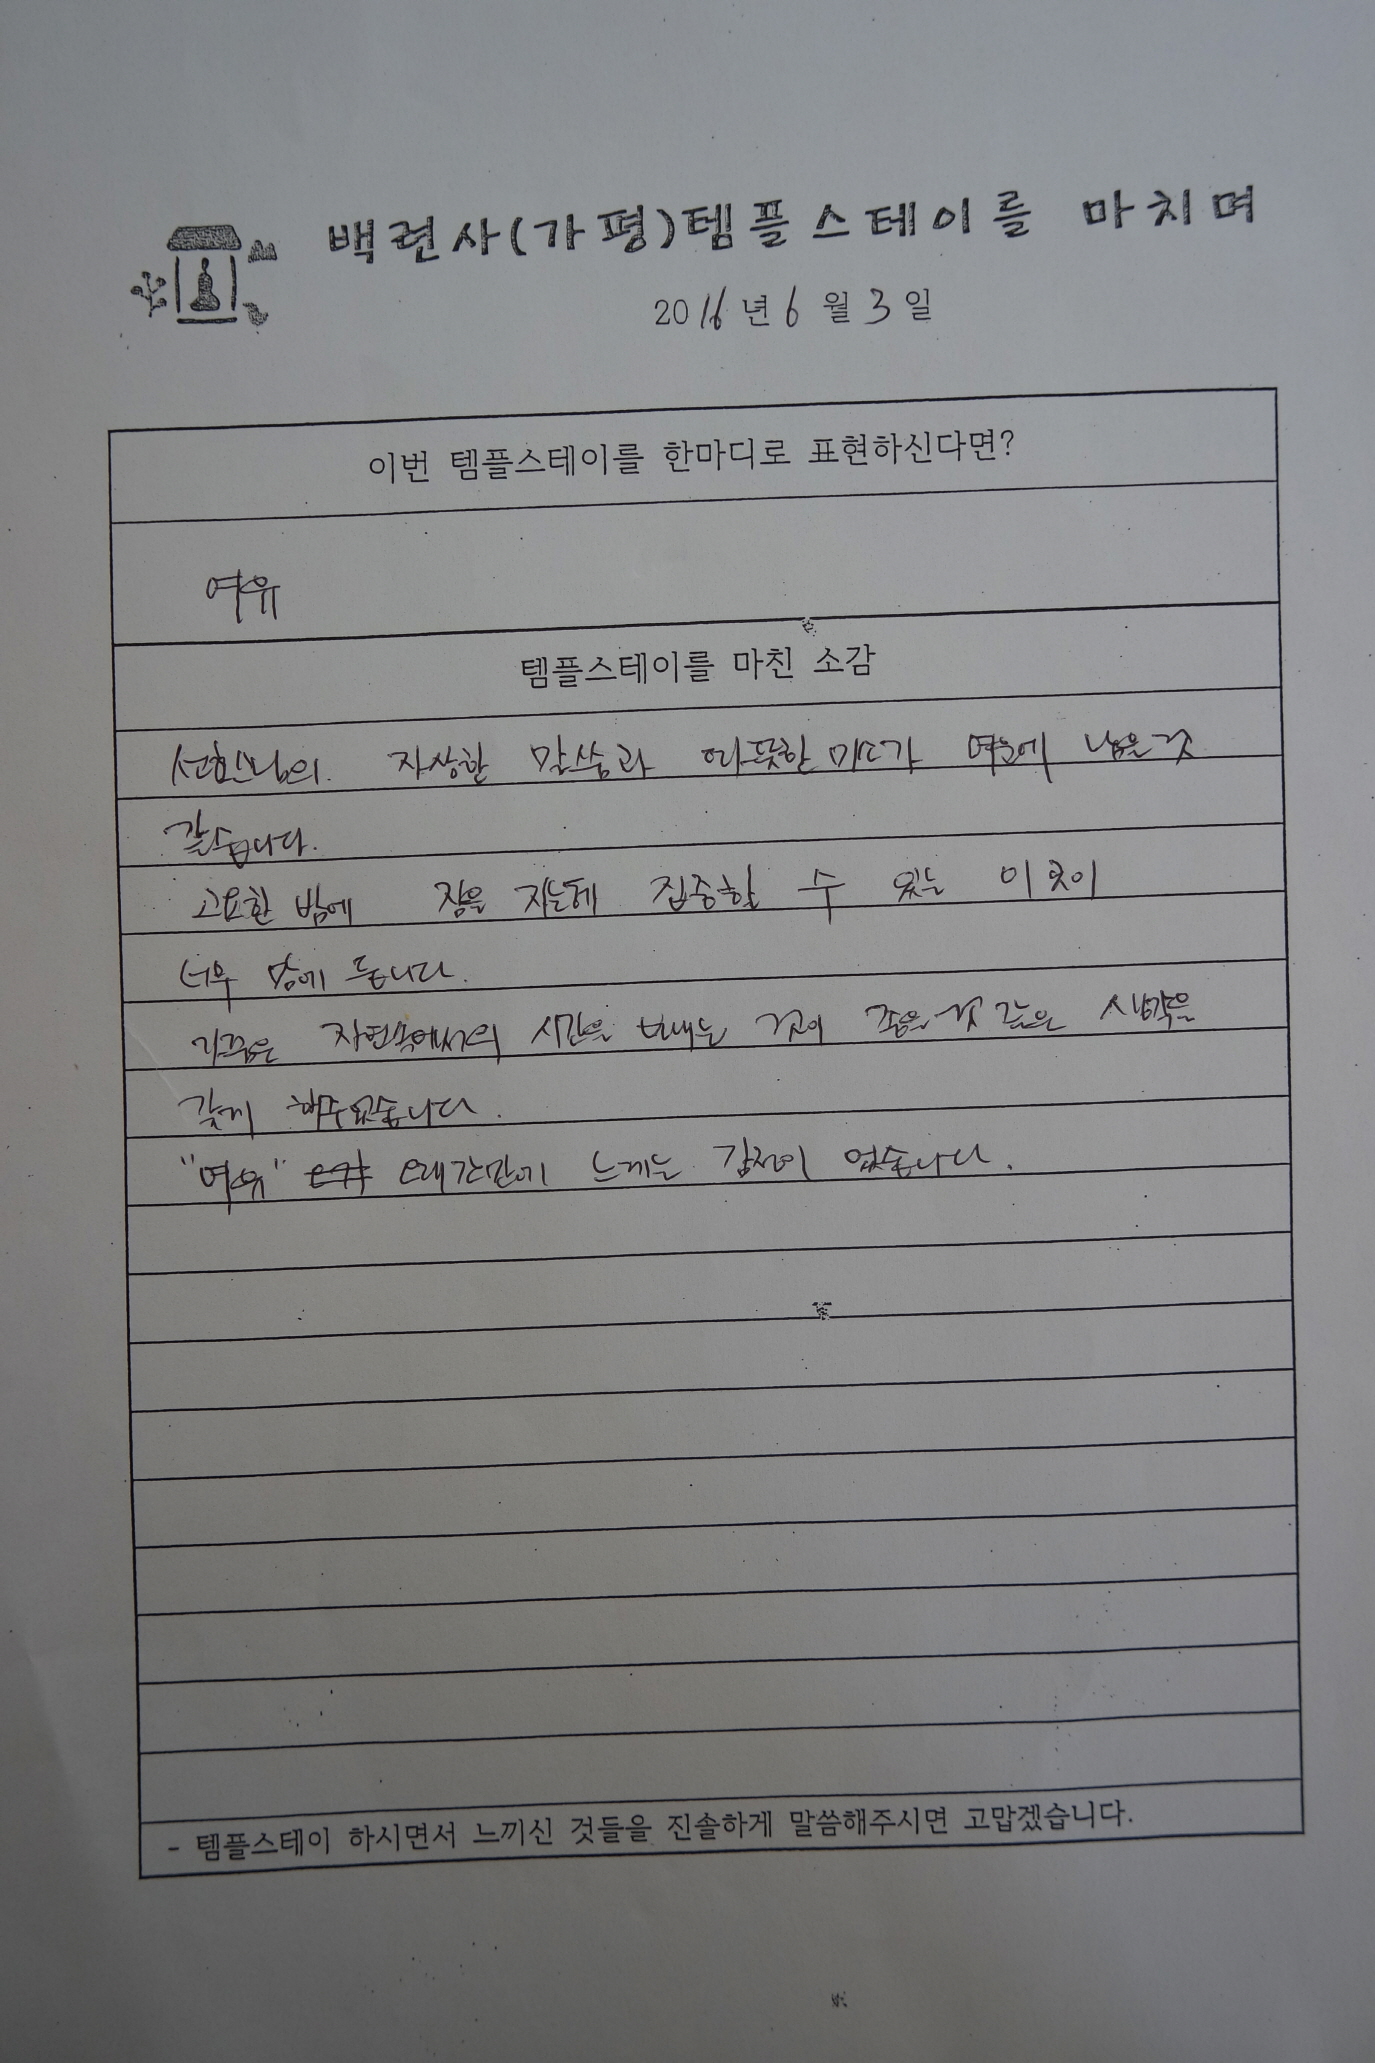 백련사(가평)템플스테이를 마치며
2016년 6월 3일
이번 템플스테이를 한마디로 표현하신다면?
여유
템플스테이를 마친 소감
자상한 말씀과 따뜻한 미소가 여운에 남은것
같습니다.
고요한 밤에 잠을 자는데 집중할 수 있는 이곳이
너무 맘에 듭니다.
가끔은 자연속에서의 시간을 보내는 것이 좋은것 같은 생각을
갖게 해주었습니다.
"여유" 오래간만에 느끼는 감정이 었습니다.
- 템플스테이 하시면서 느끼신 것들을 진솔하게 말씀해주시면 고맙겠습니다.